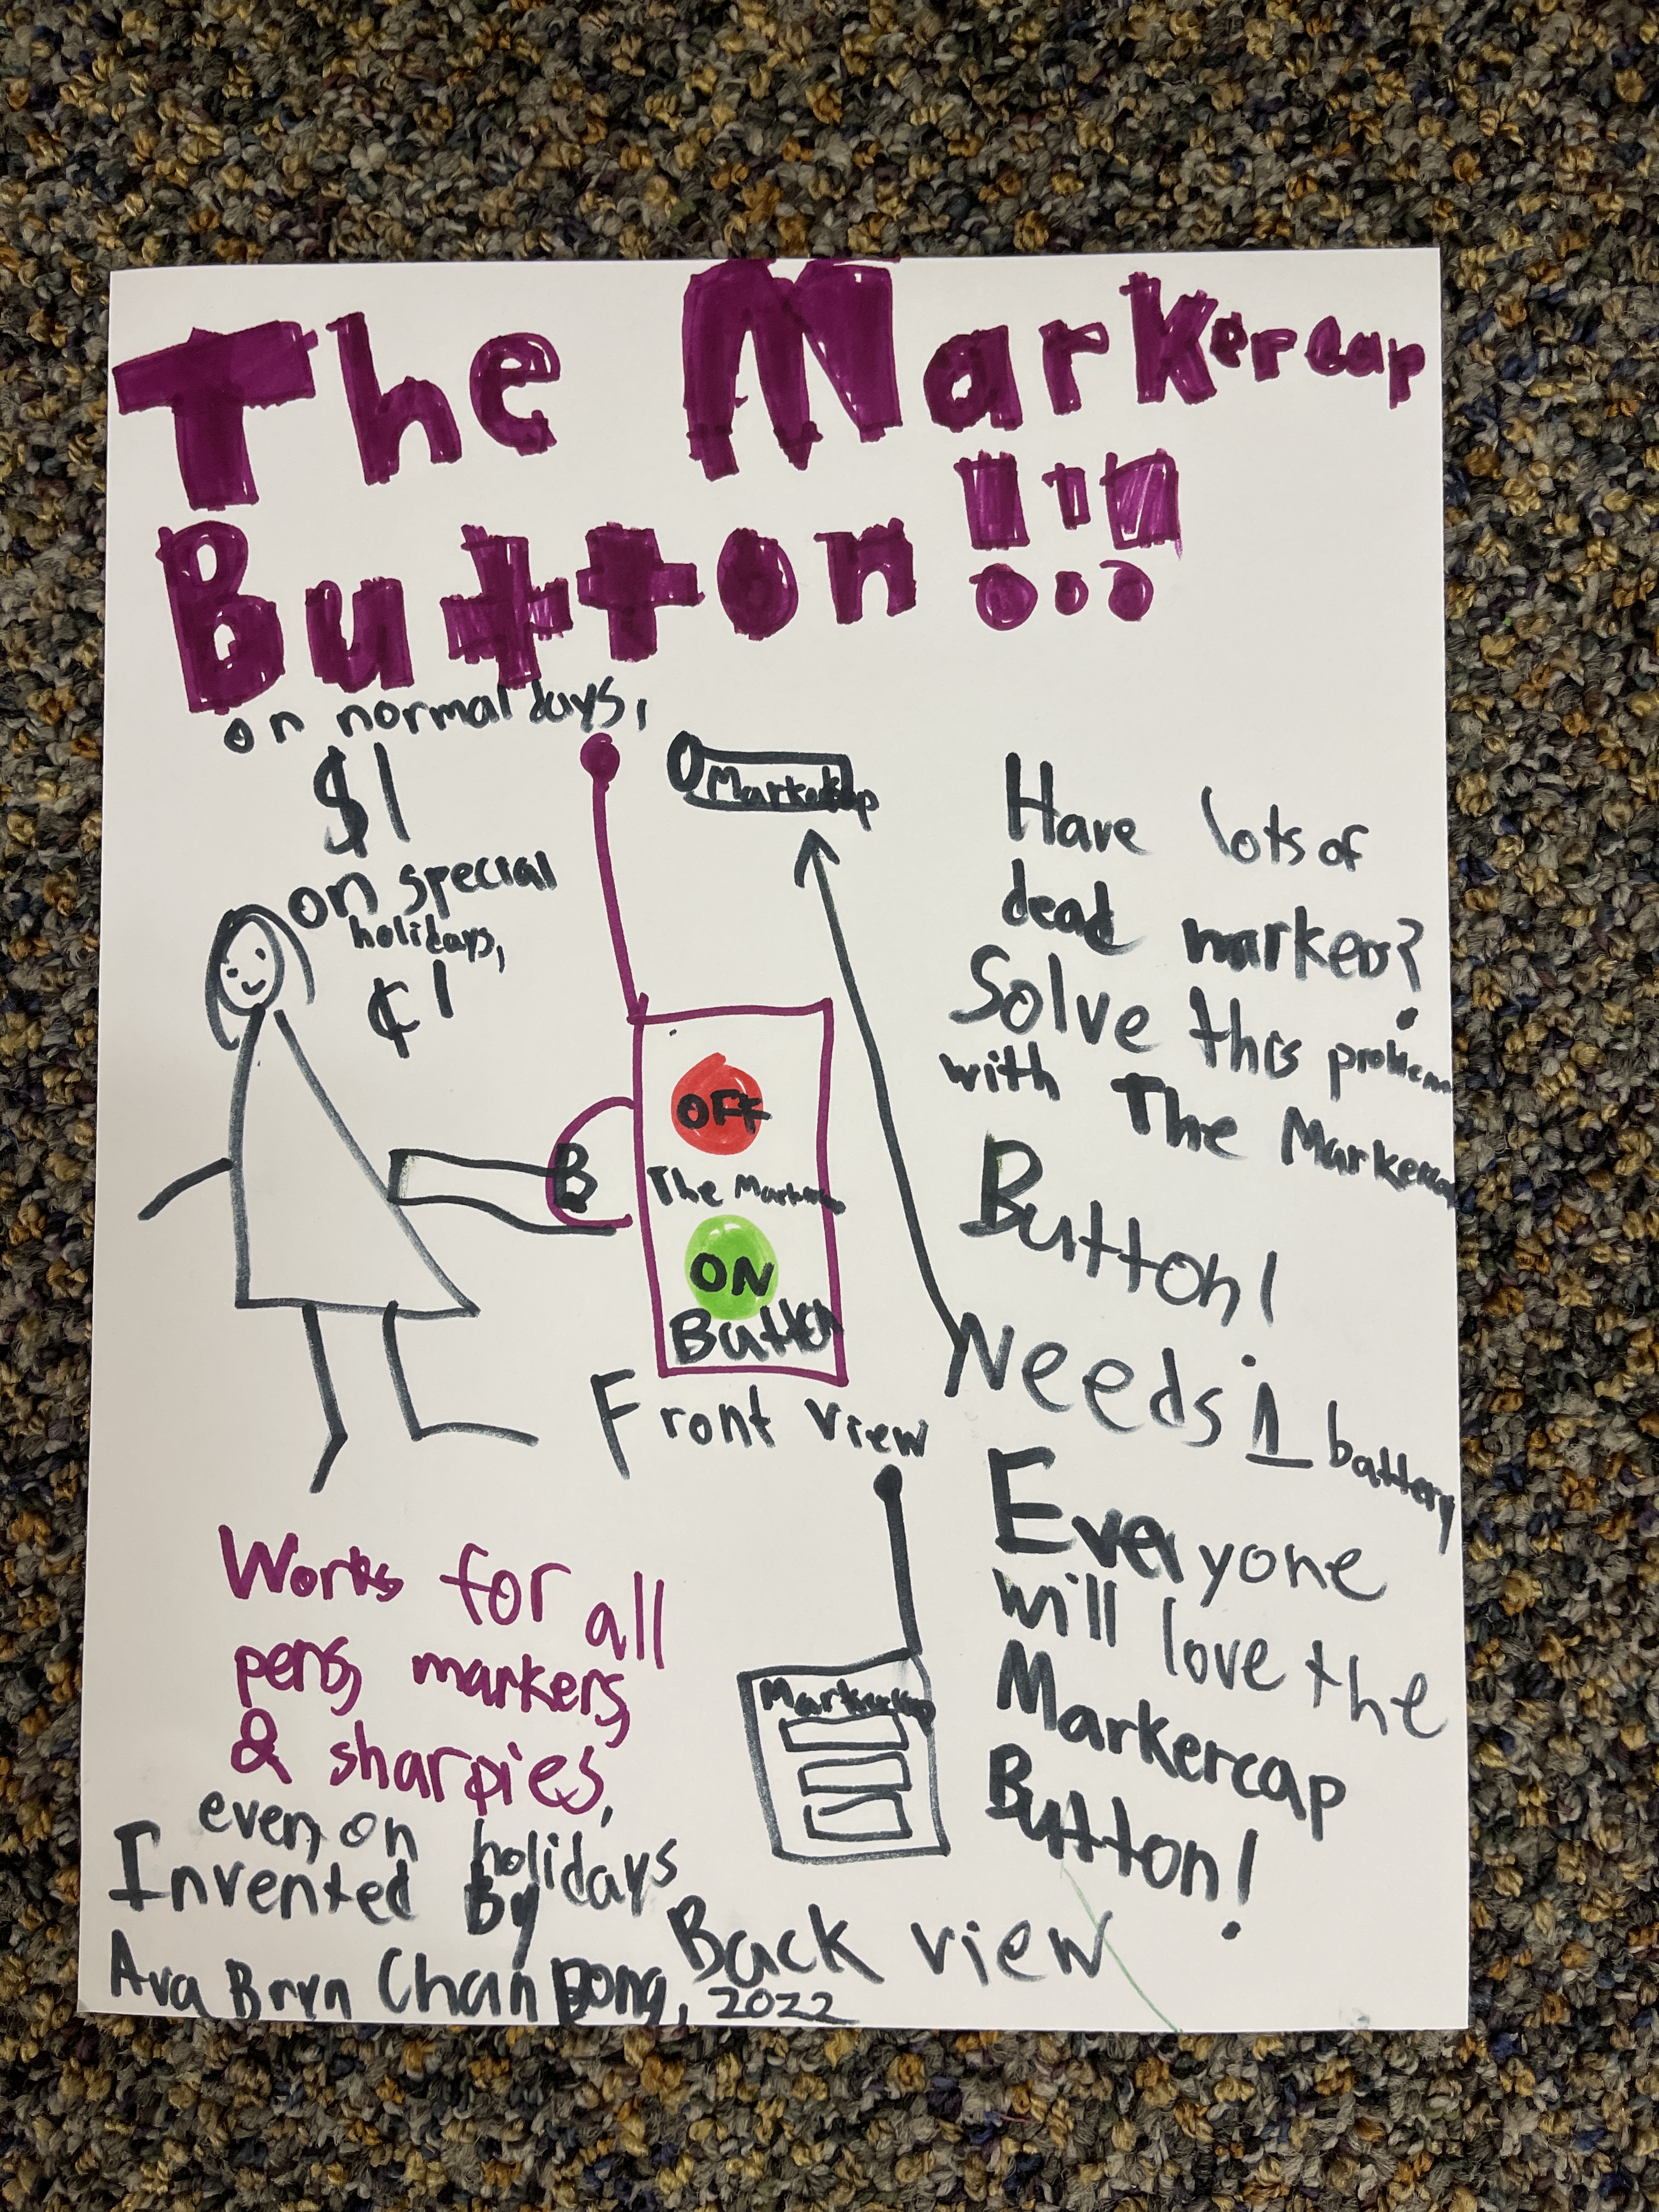 The Markercap
Button!!!
on normal days,
$1
on special
holidays,
¢1
Markercap
OFF
The Markercap
ON
Button
B
Front view
Have lots of
dead markers?
Solve this problem
with The Markercap
Button!
Needs 1 battery
Everyone
will love the
Markercap
Button!
Works for all
pens, markers,
& sharpies,
even on holidays
Markercap
Back view
Invented By
Ava Bryn Chan Dong, 2022